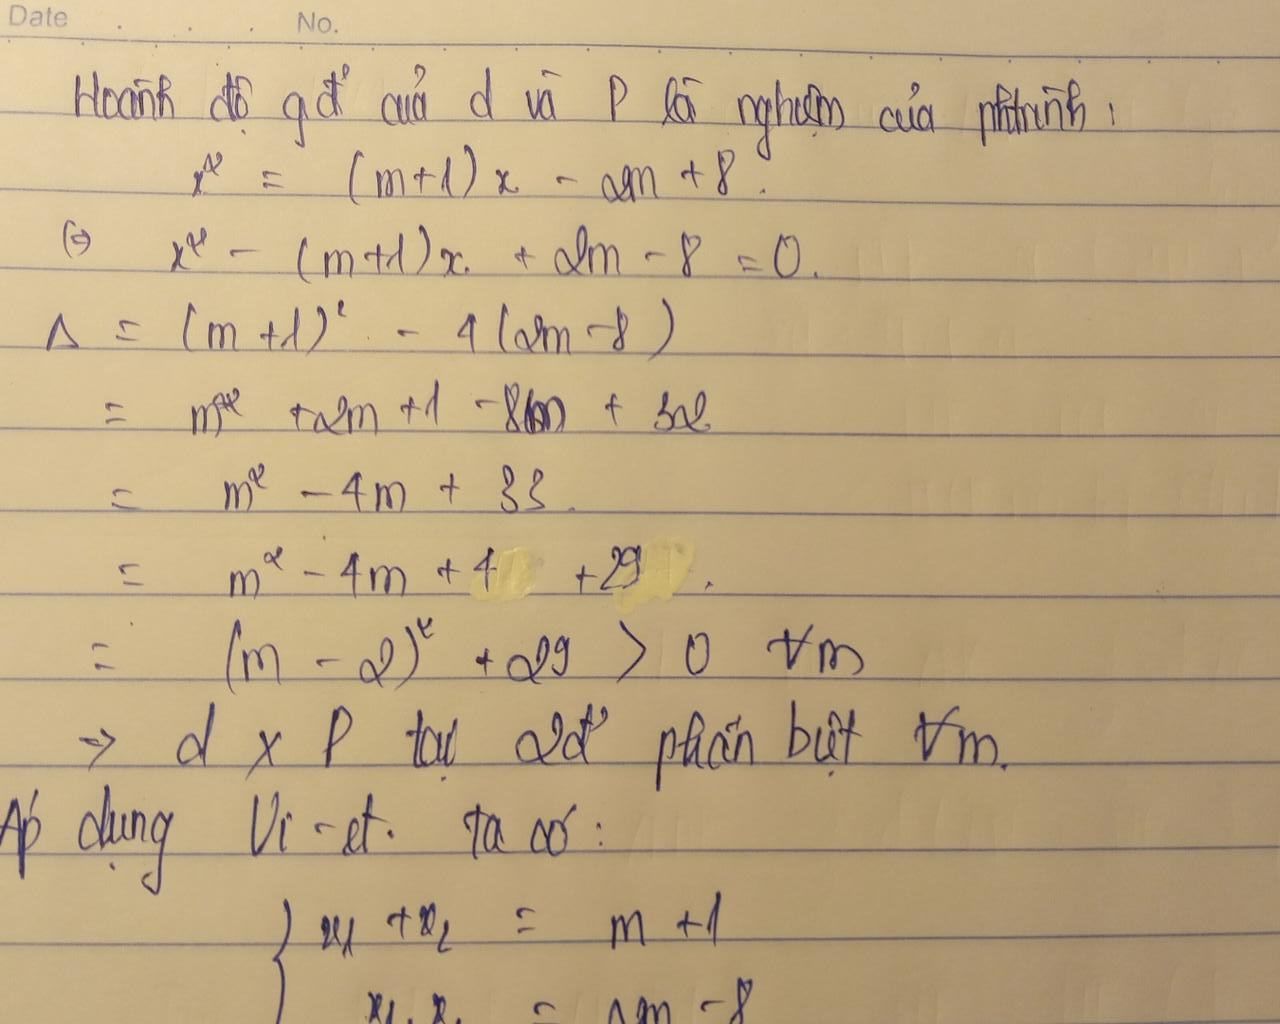 Date No.
Hoành độ gđ của d và P là nghiệm của phtrình:
x² = (m+1)x - 2m + 8.
(=) x² - (m+1)x + 2m - 8 = 0.
Δ = (m+1)² - 4(2m-8)
= m² + 2m + 1 - 8m + 32
= m² - 4m + 33.
= m² - 4m + 4 + 29.
= (m - 2)² + 29 > 0 ∀m
=> d x P tại 2đ phân biệt ∀m.
Áp dụng Vi-et. ta có:
{ x₁ + x₂ = m + 1
x₁. x₂ = 2m - 8